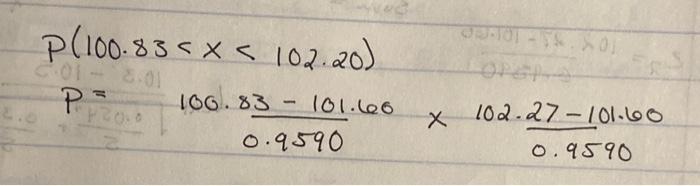 P(100.83 < x < 102.20)
P = 100.83 - 101.60 x 102.27 - 101.60
0.9590 0.9590